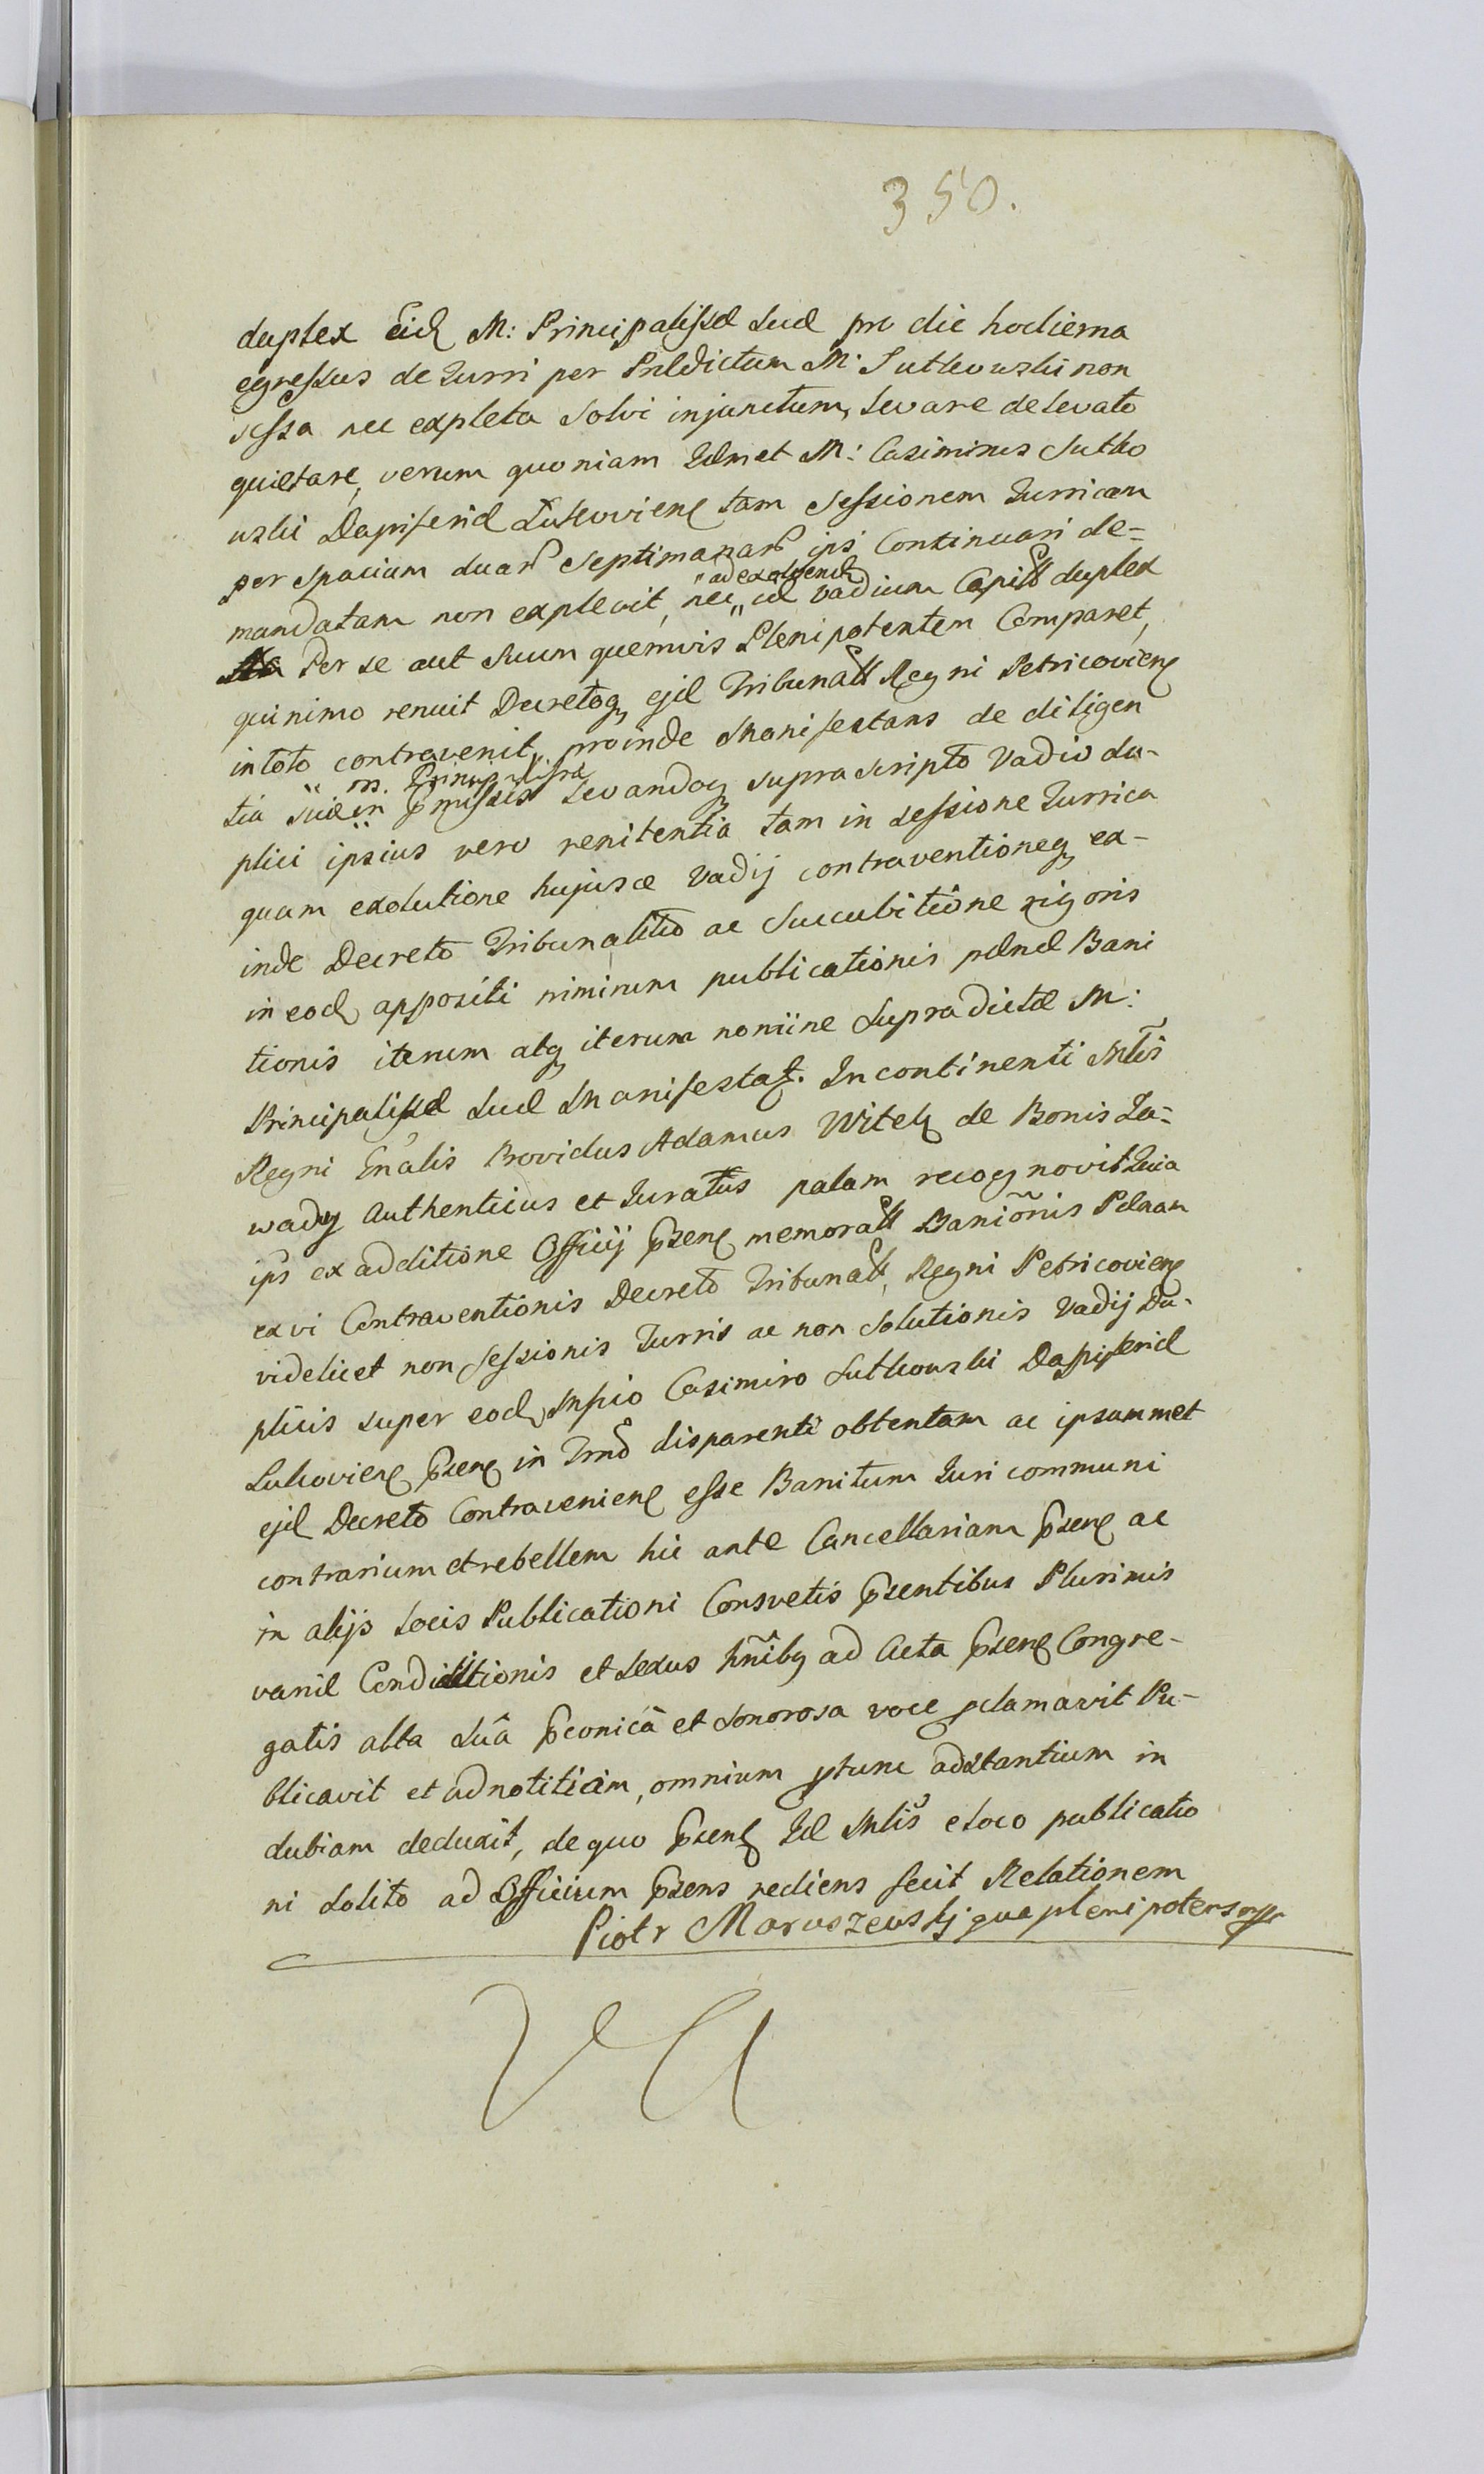 350.
duplex Eid M: Principalissæ Suæ pro die hodierna
egressus de Turri per Prædictum M: Sutkowski non
sessa nec expleta solvi injunctum, levare de levato
quietare, verum quoniam Idemet M: Casimirus Sutko
wski Dapiferid Lukovien tam sessionem Turricam
per spacium duar Septimanar ips Continuari de=
mandatam non explevit, nec "ad exolvend" id vadium Capitt duplex
Per se aut suum quemvis Plenipotentem Comparet,
quinimo renuit Decretoq ejd Tribunatt Regni Petricovien
in toto contravenit, proinde Manifestans de diligen
tia suæ "M. Principalissæ" in pmissis levandoq supra scripto Vadio du-
plici ipsius vero renitentia tam in sessione Turrica
quam exolutione hujusce Vadij contraventioneq ex-
inde Decreto Tribunalitio ac Succubitione rigoris
in eod appositi nimirum publicationis pænæ Bani
tionis iterum atq iterum nomiine Supradictæ M:
Principalissæ Suæ Manifestat. In continenti Mlis
Regni Gnalis Providus Adamus Witek de Bonis Za=
wady Authenticus et Juratus palam recognovit Quia
ips ex additione Officij Psen memoratt Banionis Pænam
ex vi Contraventionis Decreto Tribunatt, Regni Petricovien
videlicet non sessionis Turris ac non solutionis Vadij Du-
plicis super eod Mfico Casimiro Sutkowski Dapiferid
Lukovien Psen in Trno disparenti obtentam ac ipsummet
ejd Decreto Contravenien esse Banitum Juri communi
contrarium et rebellem hic ante Cancellariam Psen ac
in alijs locis Publicationi Consvetis Psentibus Plurimis
variæ Conditionis et sexus hnibq ad Acta Psen Congre-
gatis alta suâ Pconicâ et sonorosa voce pclamavit Pu-
blicavit et ad notitiam, omnium ptunc adstantium in
dubiam deduxit, de quo Psens Id Mlis e loco publicatio
ni solito ad Officium Psens rediens fecit Relationem
Piotr Maruszewskj qua plenipotens mpp